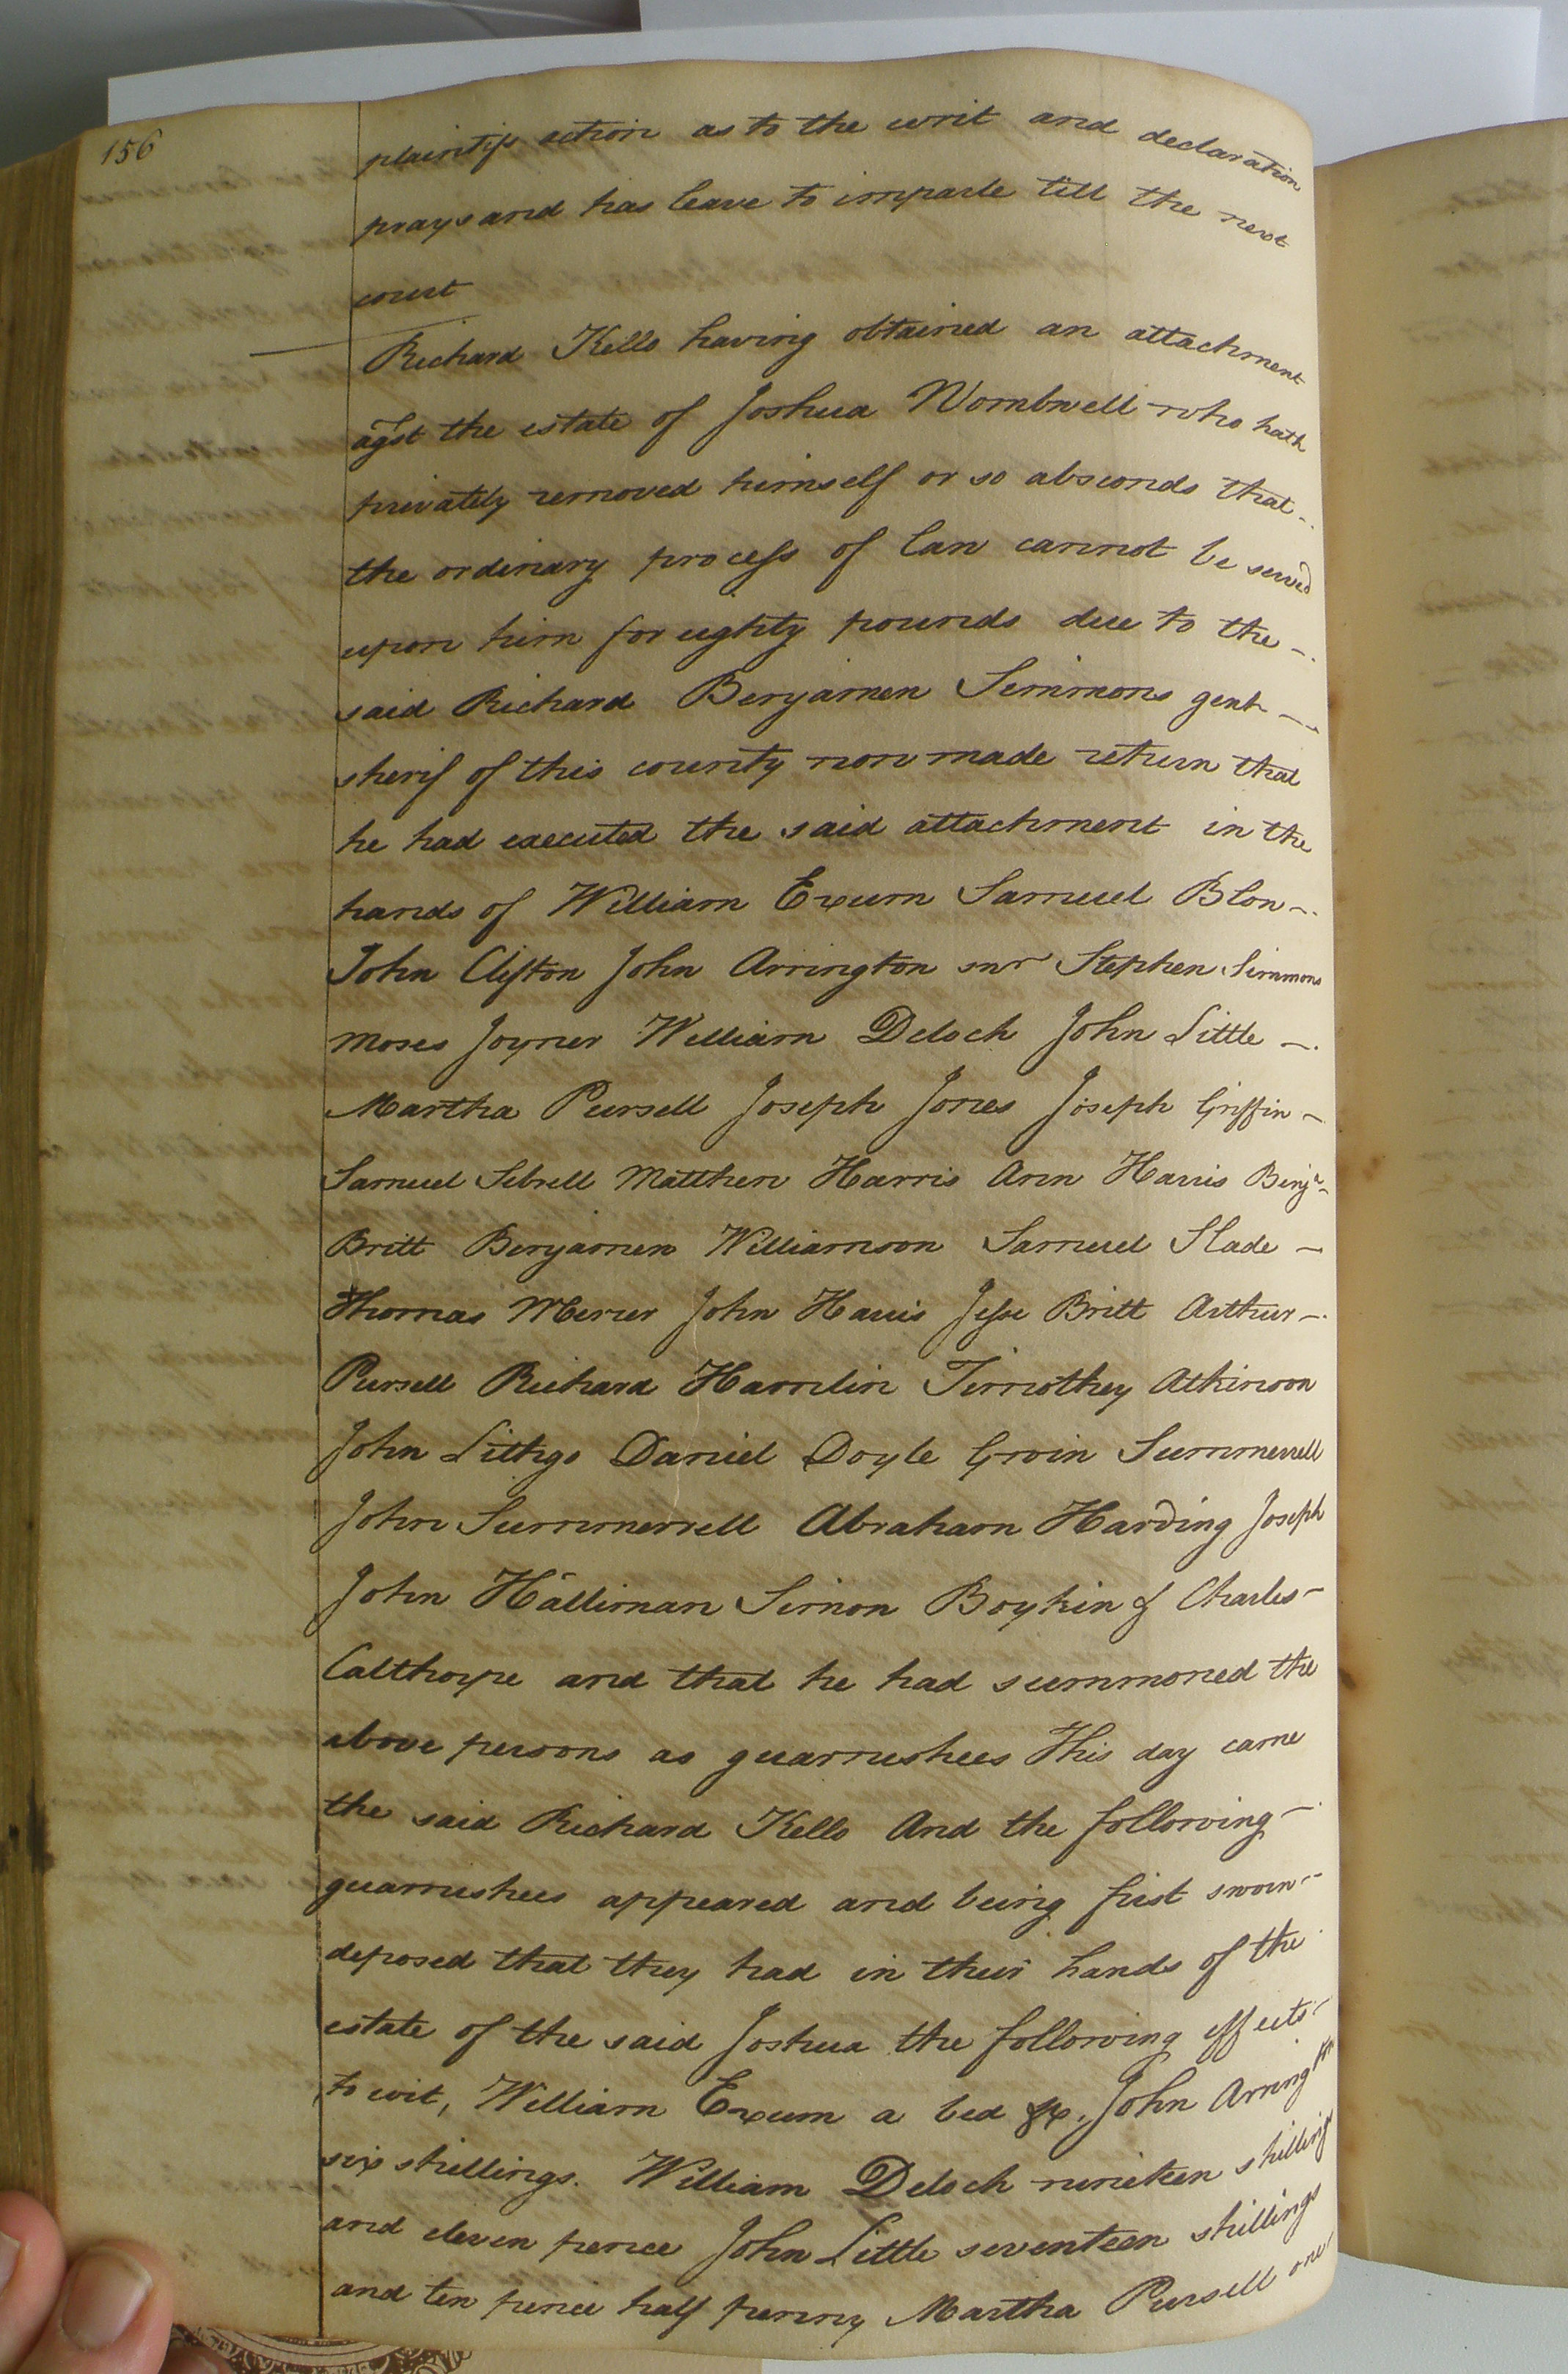 156
plaintifs action as to the writ and declaration
prays and has leave to imparle till the next
court
Richard Kello having obtained an attachment
agst the estate of Joshua Wombwell who hath
privately removed himself or so absconds that
the ordinary process of law cannot be served
upon him for eighty pounds due to the
said Richard Benjamen Simmons gent
sherif of this county now made return that
he had executed the said attachment in the
hands of William Exum Samuel Blow
John Clifton John Arrington snr Stephen Simmons
Moses Joyner William Deloch John Little
Martha Pursell Joseph Jones Joseph Griffin
Samuel Sebrell Matthew Harris Ann Harris Benja
Britt Benjamen Williamson Samuel Slade
Thomas Mercer John Harris Jesse Britt Arthur
Pursell Richard Hamlin Timothey Atkinson
John Lithgo Daniel Doyle Gwin Summerrell
John Summerrell Abraham Harding Joseph
John Halliman Simon Boykin & Charles
Calthorpe and that he had summoned the
above persons as guarnishees This day came
the said Richard Kello And the following
guarnishees appeared and being first sworn
deposed that they had in their hands of the
estate of the said Joshua the following effects
to wit, William Exum a bed &c. John Arrington
six shillings. William Deloch nineteen shillings
and eleven pence John Little seventeen shillings
and ten pence half penny Martha Pursell one